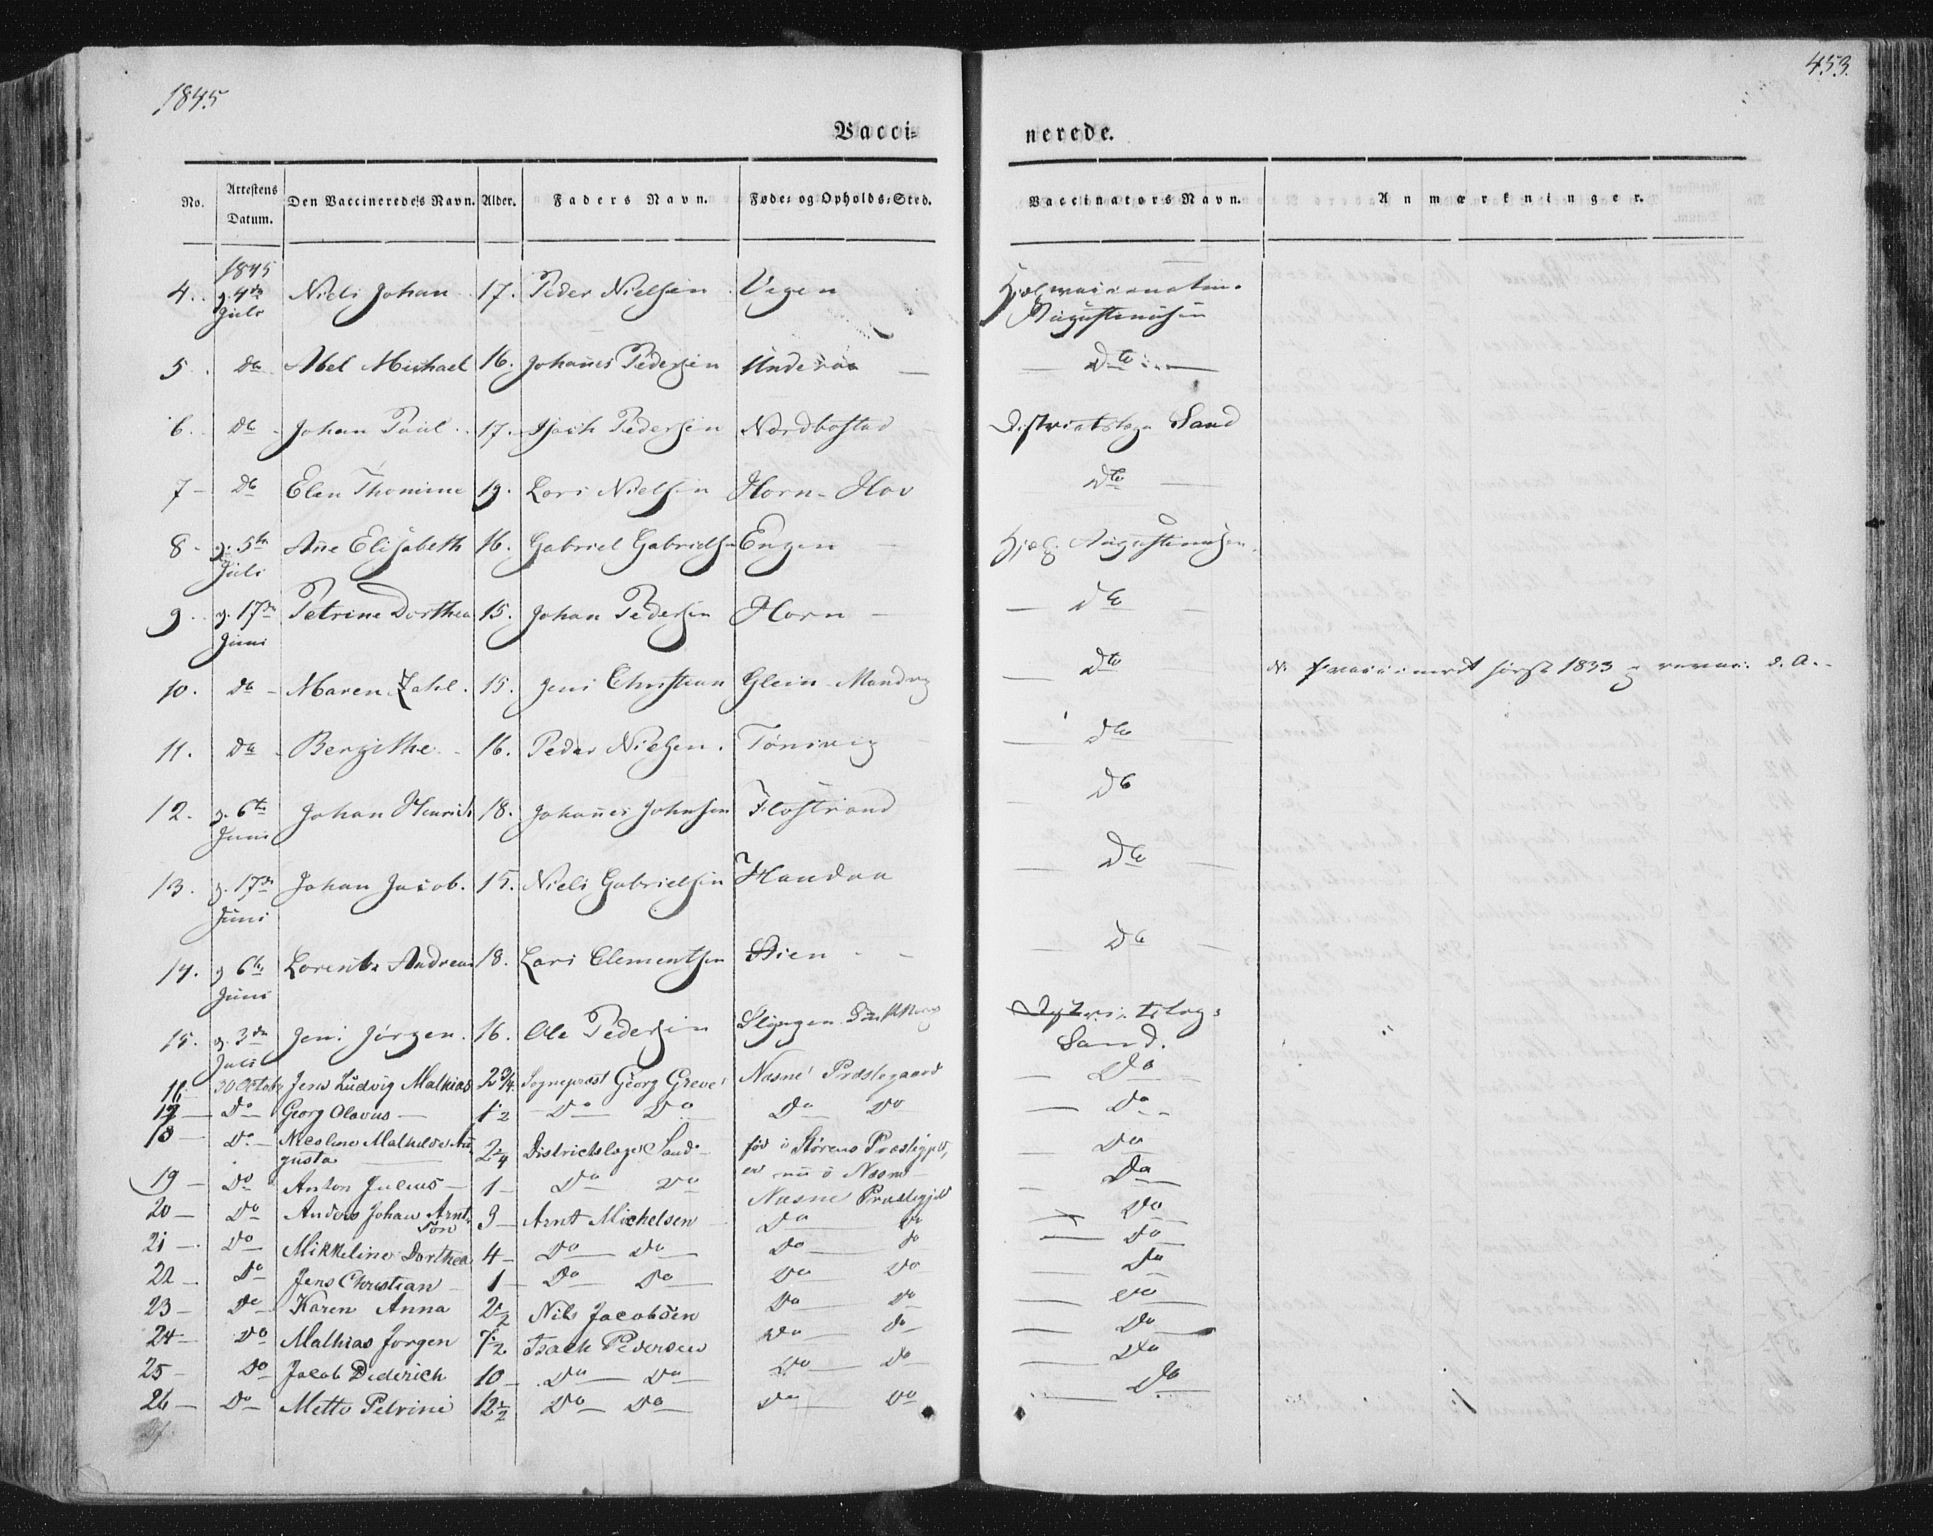 1845
453.
Vacci=
nerede.
No. Attestens Datum. Den Vaccineredes Navn. Alder. Faders Navn. Føde= og Opholds=Sted. Vaccinators Navn. Anmærkninger.
1845
4. g. 4de Niels Johan 17. Peder Nielsen Vegen Hjelpevaccinateur
Juli Augustinusen
5. Do Abel Michael 16. Johannes Pedersen Underaa Dto
6. Do Johan Paul 17. Isach Pedersen Nordbostad Districtslæge Sand
7 Do Elen Thomine 19. Lars Nielsen Horn - Hov Dto
8 g. 5te Ane Elisabeth 16. Gabriel Gabrielsen Engen Hjelp. Augustinusen
Juli
9 g. 17de Petrine Dorthea 15. Johan Pedersen Horn Dto
Juni
10. Do Maren Zahl. 15. Jens Christian Glein Dto vaccineret først 1833
11. Do Bergithe 16. Peder Nielsen. Tønsvig Dto
12. g. 6te Johan Henrich 18. Johannes Johnsen Flostrand Do
Juni
13. g. 17de Johan Jacob. 15. Niels Gabrielsen Handaa Do
Juni
14. g 6te Lorents Andreas 18. Lars Clementsen Stien Do
Juni
15. g. 3de Jens Jørgen. 16. Ole Pedersen Slyngen Districtslæg:
Juli Sand.
16 30 Octobr Jens Ludvig Mathias 2 3/4 Sognepræst Georg Greve Næsne Præstegaard Do
17 Do Georg Olavus 1/2 Do Do Do Do Do
18 Do Nicoline Mathilde Au- 2 1/4 Districtslæge Sand fød i Størens Præstegjeld, Do
gusta er nu i Næsne
19 Do Anton Julius 1 Do Do Næsne Præstegjeld Do
20 Do Anders Johan Arnt- 9 Arnt Michelsen Do Do Do
søn
21 Do Mikkeline Dorthea 4 Do Do Do Do Do
22 Do Jens Christian 1 Do Do Do Do Do
23 Do Karen Anna 2 1/2 Nils Jacobsen Do Do Do
24 Do Mathias Jørgen 7 1/2 Isach Pedersen Do Do Do
25 Do Jacob Diderich 10 Do Do Do Do Do
26 Do Mette Petrine 12 1/2 Do Do Do Do Do